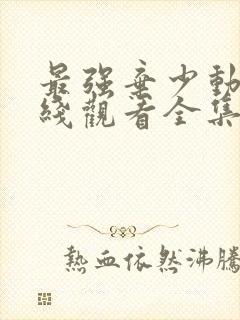 最强棄少動
綫觀看全集
熱血依然沸騰